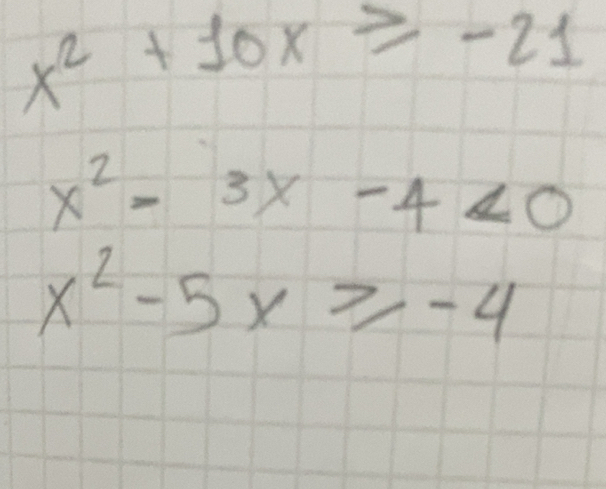 x² + 10x ≥ -21
x² - 3x - 4 < 0
x² - 5x ≥ -4